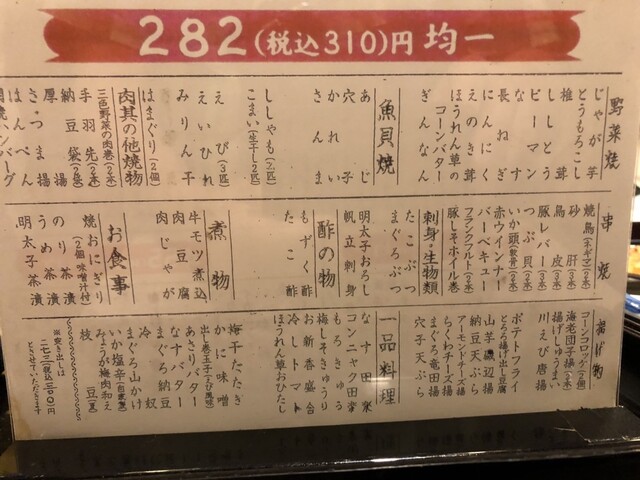 282(税込310)円 均一
野菜焼
じゃが芋
とうもろこし
椎茸
ししとう
ピーマン
なす
長ねぎ
にんにく
えのき茸
ほうれん草の
コーンバター
ぎんなん
魚貝焼
あじ
穴子
かれい
さんま
ししゃも(二匹)
こまい(生干し2本)
えび(3匹)
えいひれ
みりん干
はまぐり(2個)
肉其の他焼物
三色野菜の肉巻(2本)
手羽先(2本)
納豆袋(2個)
厚揚
さつま揚
はんぺん
串焼
焼鳥(ネギマ)(2本)
砂肝(2本)
鳥皮(2本)
豚レバー(2本)
つぶ貝(2本)
いか頭(軟骨)(2本)
赤ウインナー
バーベキュー
フランクフルト(2本)
豚しそホイル巻
刺身・生物類
たこぶつ
まぐろぶつ
明太子おろし
帆立刺身
酢の物
もずく酢
たこ酢
煮物
牛モツ煮込
肉豆腐
肉じゃが
お食事
焼おにぎり
(2個 味噌汁付)
のり茶漬
うめ茶漬
明太子茶漬
揚げ物
コーンコロッケ(2個)
海老団子揚(3本)
揚げしゅうまい
川えび唐揚
ポテトフライ
とろろ揚げ出し豆腐
山芋磯辺揚
納豆天ぷら
アーモンドチーズ揚
ちくわチーズ揚
まぐろ竜田揚
穴子天ぷら
一品料理
なす田楽
コンニャク田楽
もろきゅう
梅しそきゅうり
お新香盛合
冷しトマト
ほうれん草おひたし
梅干たたき
かに味噌
出し巻玉子
あさりバター
なすバター
まぐろ納豆
冷奴
まぐろ山かけ
いか塩辛(自家製)
みょうが梅肉和え
枝豆
※突き出しは
二七三(税込三〇〇)円
とさせていただきます